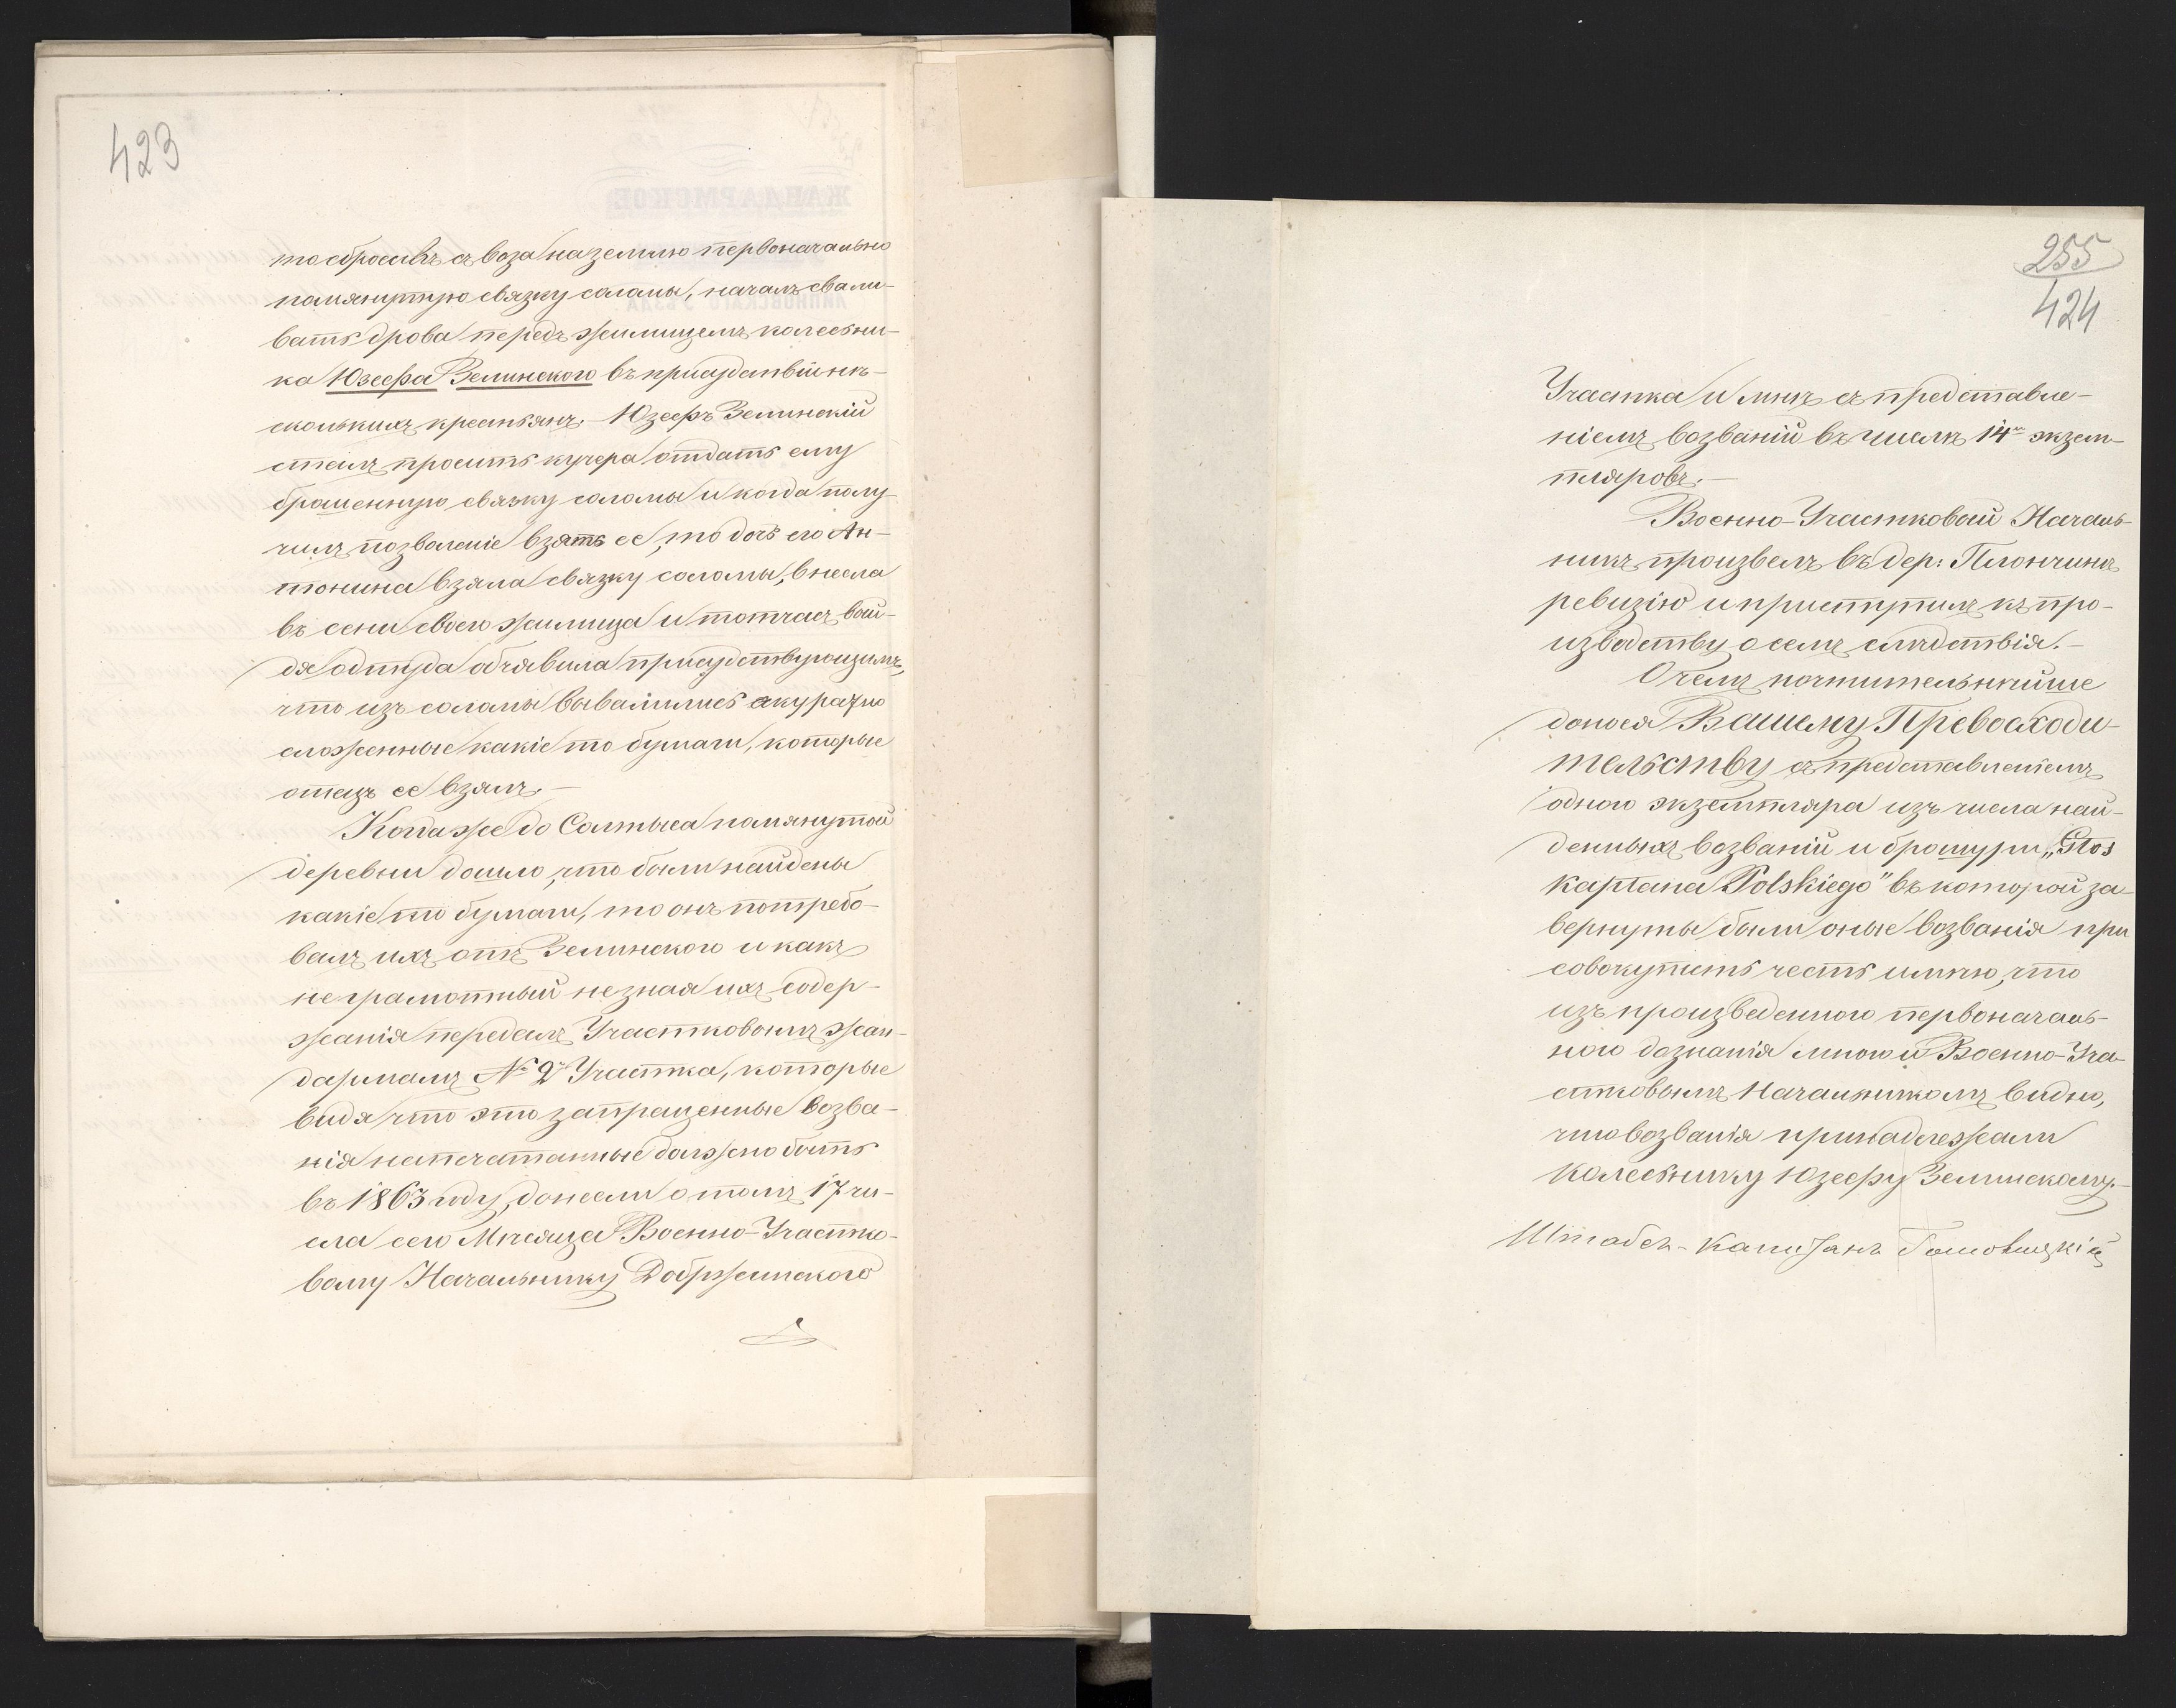 423
то сбросивъ съ воза на землю первоначально
помянутую связку соломы, началъ свали-
вать дрова передъ жилищемъ колесьни-
ка Юзефа Зелинского въ присудствіи нѣ-
сколькихъ крестьянъ. – Юзефъ Зелинскій
сталъ просить кучера отдать ему
брошенную связку соломы и когда полу-
чилъ позволеніе взять ее, то дочь его Ан-
тонина взяла связку соломы, внесла
въ сени своего жилища и тотчасъ вый-
дя одтуда обявила присудствующимъ,
что изъ соломы вывалились акуратно
сложенные какіе то бумаги, которые
отецъ ее взялъ. –
Когда же до Солтыса помянутой
деревни дошло, что были найдены
какіе то бумаги, то онъ потребо-
валъ ихъ отъ Зелинского и какъ
не грамотный не зная ихъ содер-
жанія передалъ Участковымъ жан-
дармамъ № 2го Участка, которые
видя что это запращенные возва-
нія напечатанные должно быть
въ 1863 году, донесли о томъ 17 чи-
сла сего Мѣсяца Военно-Участко-
вому Начальнику Добржинского
255
424
Участка и мнѣ съ представле-
ніемъ возваній въ числѣ 14ти экзем-
пляровъ. –
Военно-Участковый Началь-
никъ произвелъ въ дер: Плончинъ
ревизію и приступилъ къ про-
изводству о семъ слѣдствія. –
О чемъ почтительнѣйше
донося Вашему Превосходи-
тельству съ представленіемъ
одного экземпляра изъ числа най-
денныхъ возваній и брошури „Głos
Kapłana Polskiego" въ которой за-
вернуты были оные возванія при
совокупить честь имѣю, что
изъ произведенного первоначаль-
ного дознанія мною и Военно-Уча-
стковымъ Начальникомъ видно,
что возванія принадлежали
колесьнику Юзефу Зелинскому. –
Штабсъ-Капитанъ